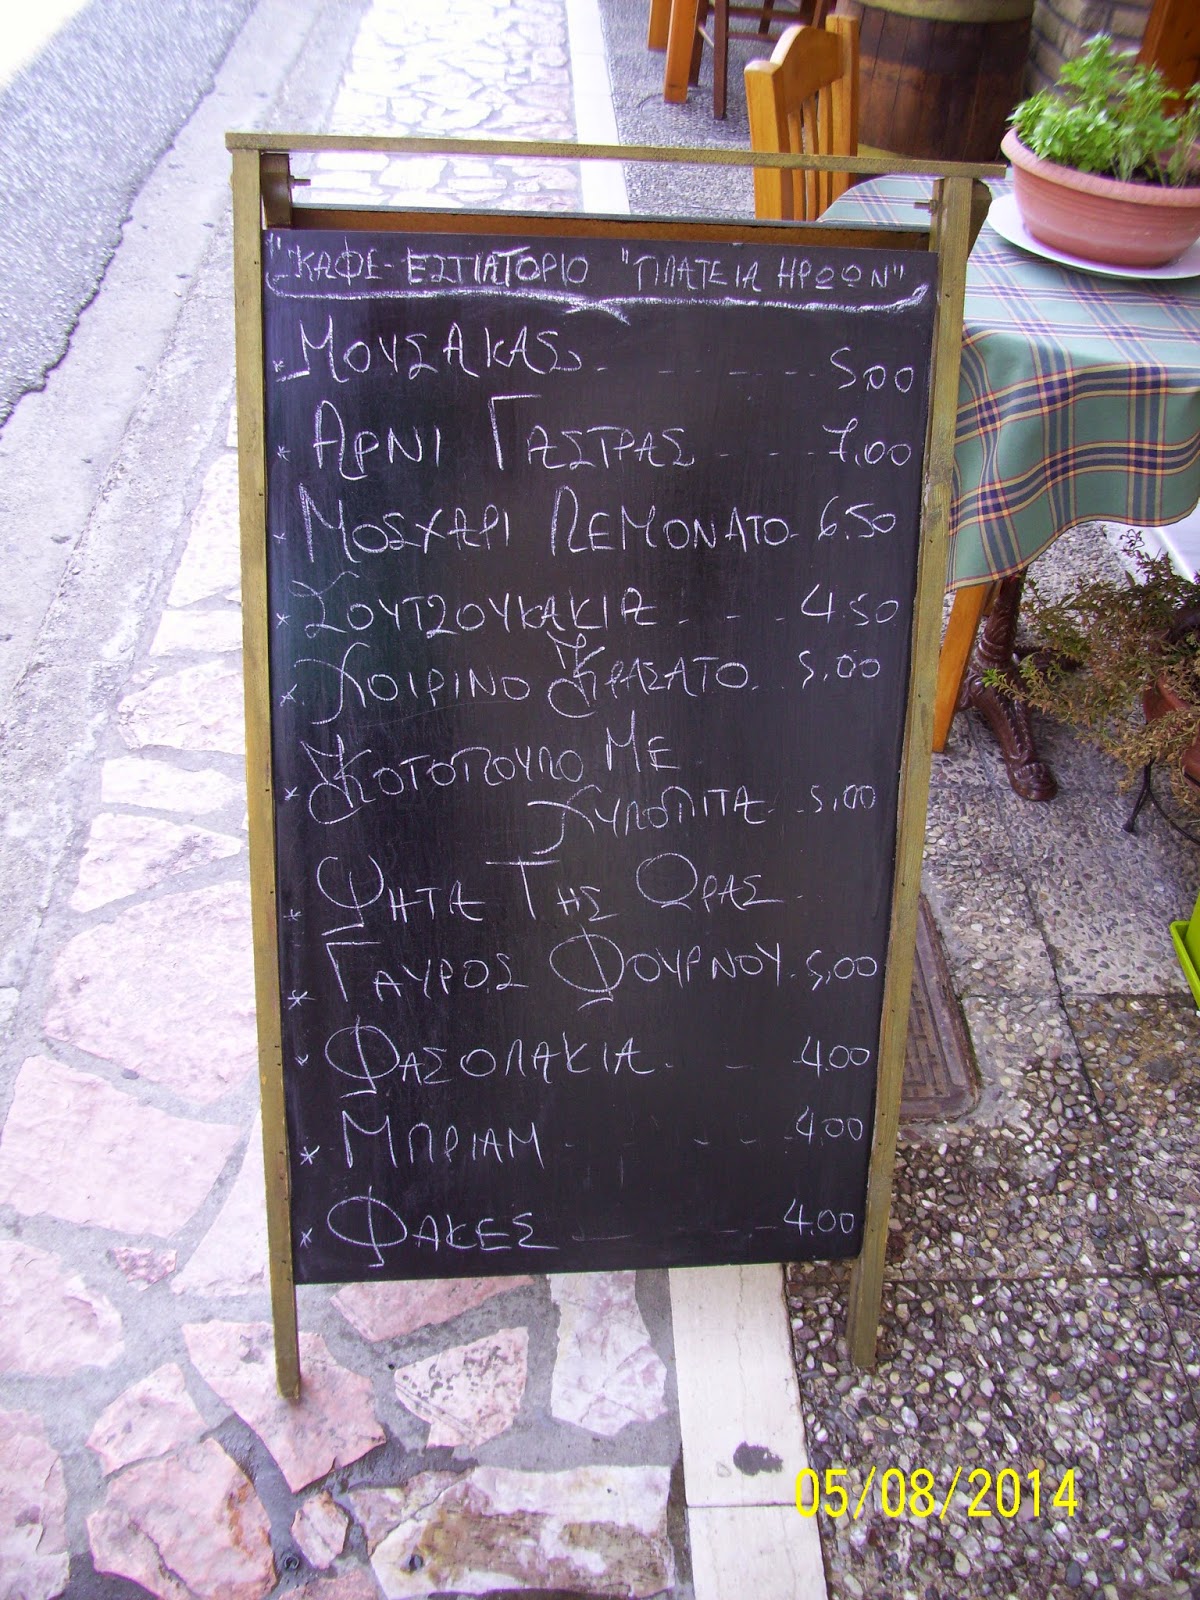 "ΚΑΦΕ-ΕΣΤΙΑΤΟΡΙΟ "ΠΛΑΤΕΙΑ ΗΡΩΩΝ"
* ΜΟΥΣΑΚΑΣ. - - - . . . . 5,00
* ΑΡΝΙ ΓΑΣΤΡΑΣ - - - - 7.00
* ΜΟΣΧΑΡΙ ΛΕΜΟΝΑΤΟ - 6.50
* ΣΟΥΤΖΟΥΚΑΚΙΑ - - - 4.50
* ΧΟΙΡΙΝΟ ΚΡΑΣΑΤΟ.. 5.00
* ΚΟΤΟΠΟΥΛΟ ΜΕ
ΧΥΛΟΠΙΤΑ - . 5.00
* ΨΗΤΑ ΤΗΣ ΩΡΑΣ - .
* ΓΑΥΡΟΣ ΦΟΥΡΝΟΥ - 5,00
* ΦΑΣΟΛΑΚΙΑ. - - - 4.00
* ΜΠΡΙΑΜ - - - - 4.00
* ΦΑΚΕΣ - - - - 4.00
05/08/2014